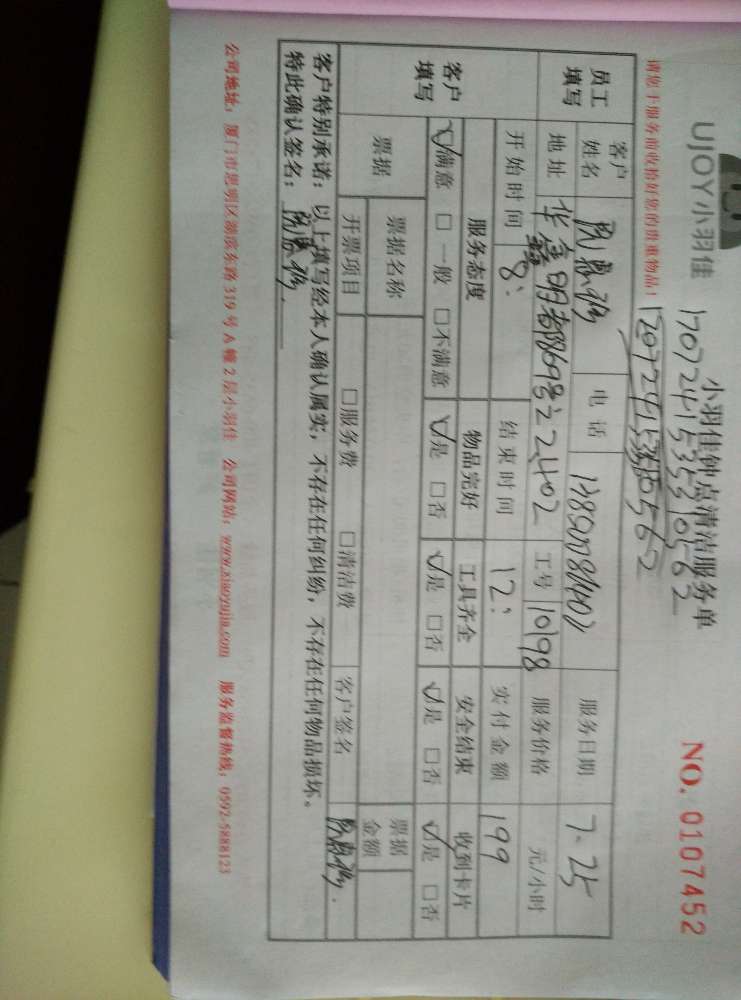 UJOY小羽佳
小羽佳钟点清洁服务单
NO. 0107452
请您于服务前收拾好您的贵重物品!
员工填写
客户姓名
电话
服务日期 7.25
地址
工号 10198
服务价格 元/小时
开始时间 8:
结束时间 12:
实付金额 199
客户填写
服务态度 物品完好 工具齐全 安全结束 收到卡片
☑满意 □一般 □不满意 ☑是 □否 ☑是 □否 ☑是 □否 ☑是 □否
票据 票据名称 票据金额
开票项目 □服务费 □清洁费 客户签名
客户特别承诺:以上填写经本人确认属实,不存在任何纠纷,不存在任何物品损坏。
特此确认签名:
公司地址:厦门市思明区湖滨东路319号A幢2层小羽佳 公司网站:www.xiaoyujia.com 服务监督热线:0592-5888123